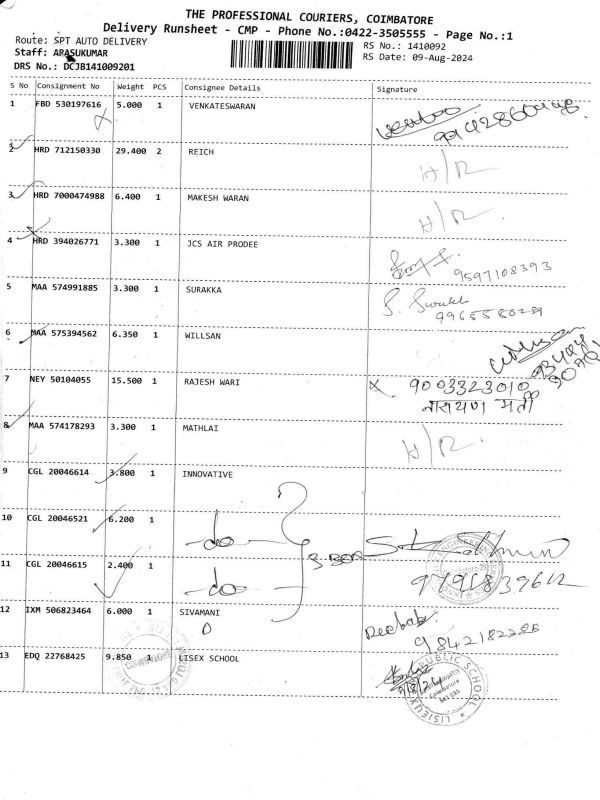 THE PROFESSIONAL COURIERS, COIMBATORE
Delivery Runsheet - CMP - Phone No.:0422-3505555 - Page No.:1
Route: SPT AUTO DELIVERY RS No.: 1410092
Staff: ARASUKUMAR RS Date: 09-Aug-2024
DRS No.: DCJB141009201
S No Consignment No Weight PCS Consignee Details Signature
1 FBD 530197616 5.000 1 VENKATESWARAN
2 HRD 712150330 29.400 2 REICH H/R
3 HRD 7000474988 6.400 1 MAKESH WARAN H/R
4 HRD 394026771 3.300 1 JCS AIR PRODEE
9597108393
5 MAA 574991885 3.300 1 SURAKKA
9965580289
6 MAA 575394562 6.350 1 WILLSAN
7 NEY 50104055 15.500 1 RAJESH WARI 9003323010
नारायण मूर्ती
8 MAA 574178293 3.300 1 MATHLAI H/R
9 CGL 20046614 3.800 1 INNOVATIVE
10 CGL 20046521 6.200 1 -do-
11 CGL 20046615 2.400 1 -do-
12 IXM 506823464 6.000 1 SIVAMANI
13 EDQ 22768425 9.850 1 LISEX SCHOOL
9/8/24
PUBLIC SCHOOL
LISIEUX